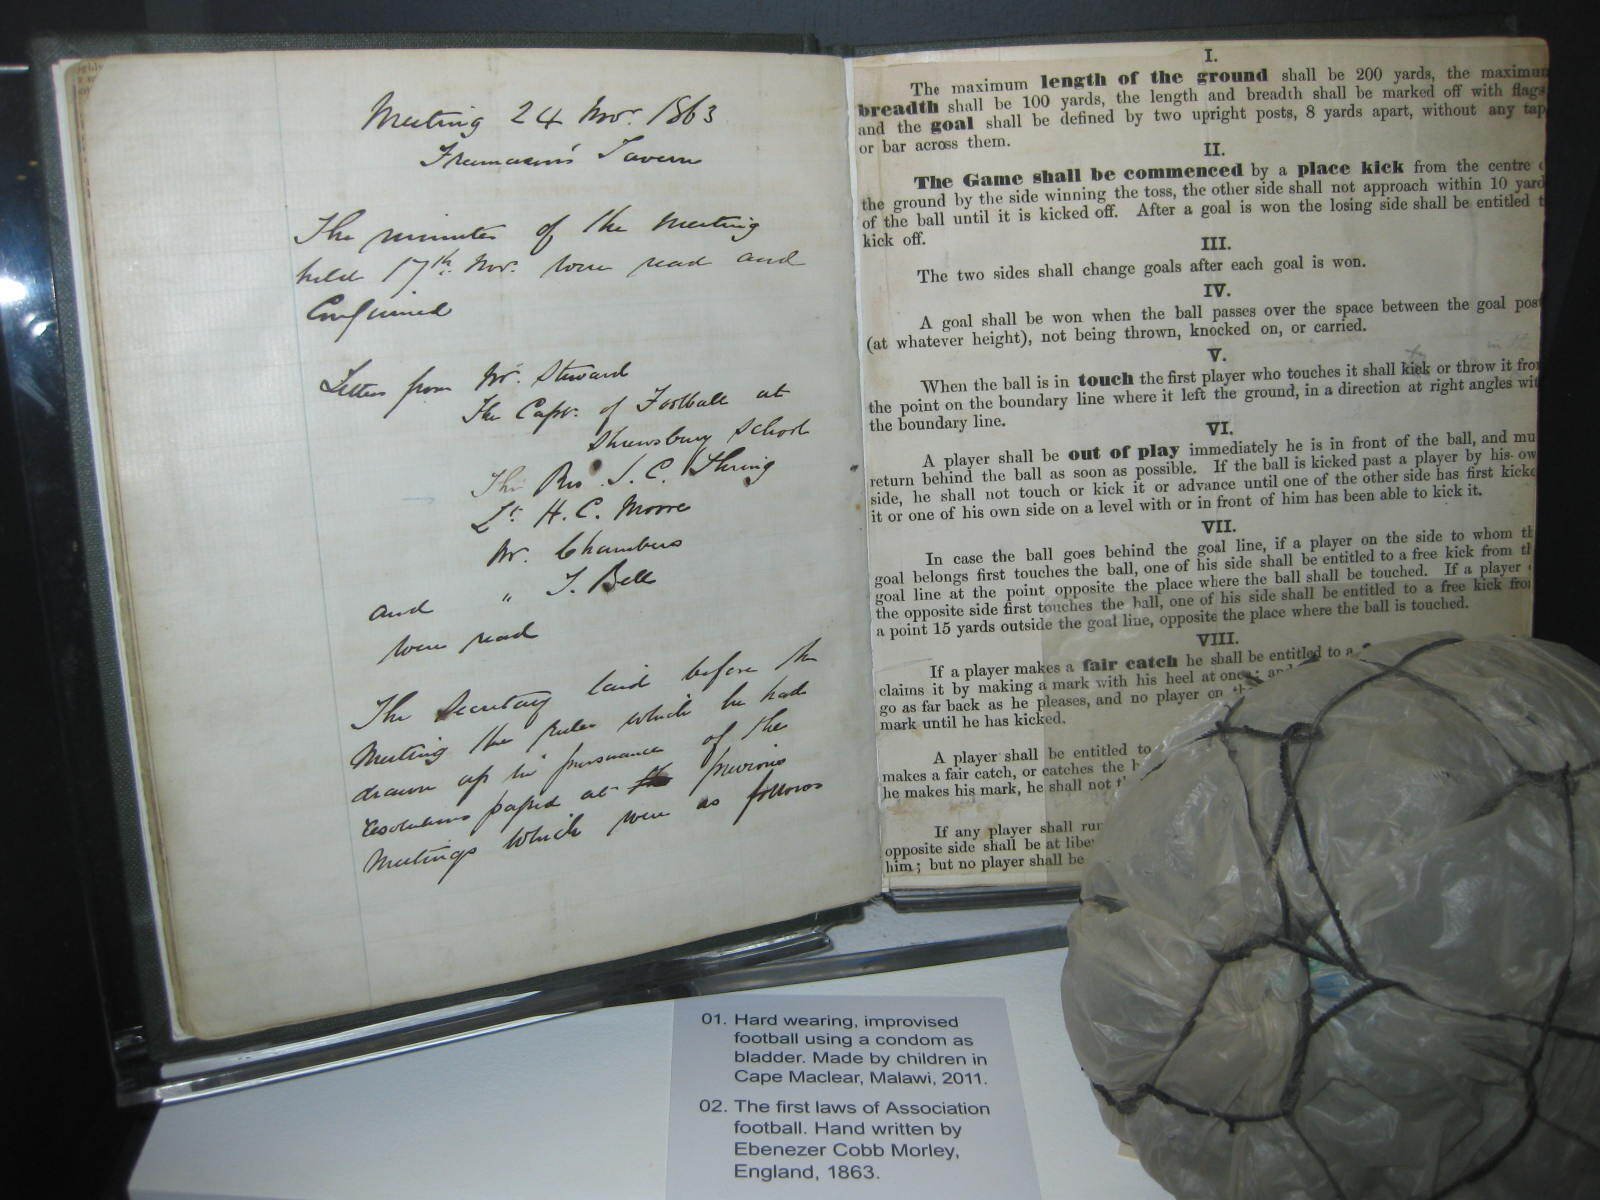 Meeting 24 Novr 1863
Freemason's Tavern
The minutes of the Meeting
held 17th Novr. were read and
Confirmed
Letters from Mr. Steward
The Captn. of Football at
Shrewsbury School
The Rev J. C. Thring
Lt H. C. Moore
Mr. Chambers
and " J. Bell
were read
The Secretary laid before the
Meeting the rules which he had
drawn up in pursuance of the
resolutions passed at previous
Meetings which were as follows
I.
The maximum length of the ground shall be 200 yards, the maximum
breadth shall be 100 yards, the length and breadth shall be marked off with flags
and the goal shall be defined by two upright posts, 8 yards apart, without any tap
or bar across them.
II.
The Game shall be commenced by a place kick from the centre
the ground by the side winning the toss, the other side shall not approach within 10 yard
of the ball until it is kicked off. After a goal is won the losing side shall be entitled t
kick off.
III.
The two sides shall change goals after each goal is won.
IV.
A goal shall be won when the ball passes over the space between the goal post
(at whatever height), not being thrown, knocked on, or carried.
V.
When the ball is in touch the first player who touches it shall kick or throw it from
the point on the boundary line where it left the ground, in a direction at right angles wit
the boundary line.
VI.
A player shall be out of play immediately he is in front of the ball, and mu
return behind the ball as soon as possible. If the ball is kicked past a player by his ow
side, he shall not touch or kick it or advance until one of the other side has first kicke
it or one of his own side on a level with or in front of him has been able to kick it.
VII.
In case the ball goes behind the goal line, if a player on the side to whom th
goal belongs first touches the ball, one of his side shall be entitled to a free kick from th
goal line at the point opposite the place where the ball shall be touched. If a player
the opposite side first touches the ball, one of his side shall be entitled to a free kick from
a point 15 yards outside the goal line, opposite the place where the ball is touched.
VIII.
If a player makes a fair catch he shall be entitled to a
claims it by making a mark with his heel at once; and
go as far back as he pleases, and no player on
mark until he has kicked.
A player shall be entitled to
makes a fair catch, or catches the b
he makes his mark, he shall not t
If any player shall run
opposite side shall be at libe
him; but no player shall be
01. Hard wearing, improvised
football using a condom as
bladder. Made by children in
Cape Maclear, Malawi, 2011.
02. The first laws of Association
football. Hand written by
Ebenezer Cobb Morley,
England, 1863.